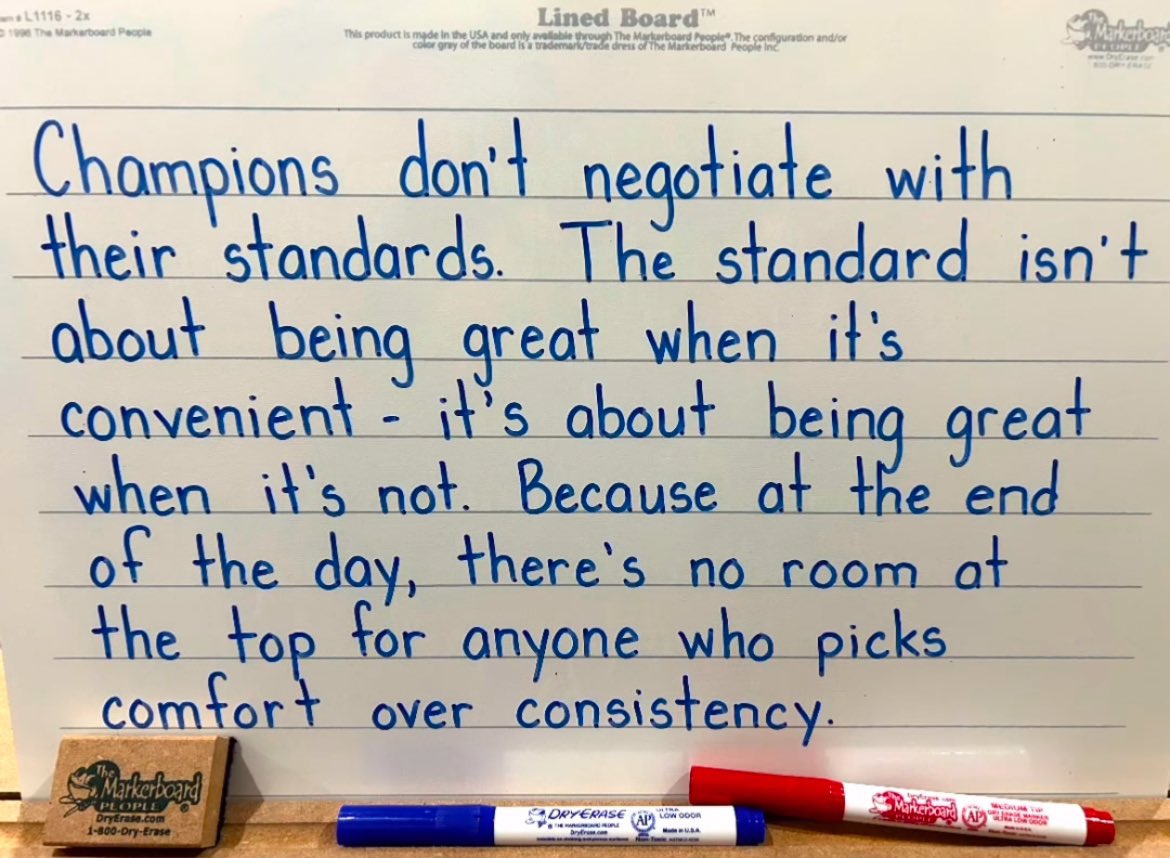 L1116 - 2x
1996 The Markerboard People
Lined Board™
This product is made in the USA and only available through The Markerboard People®. The configuration and/or
color gray of the board is a trademark/trade dress of The Markerboard People Inc.
The
Markerboard
PEOPLE
www.DryErase.com
800-DRY-ERASE
Champions don't negotiate with
their standards. The standard isn't
about being great when it's
convenient - it's about being great
when it's not. Because at the end
of the day, there's no room at
the top for anyone who picks
comfort over consistency.
The
Markerboard
PEOPLE
DryErase.com
1-800-Dry-Erase
DRYERASE
THE MARKERBOARD PEOPLE
DryErase.com
AP
ULTRA
LOW ODOR
Made in U.S.A.
Non-Toxic
The
Markerboard
PEOPLE
AP
MEDIUM TIP
DRY ERASE MARKER
ULTRA LOW ODOR